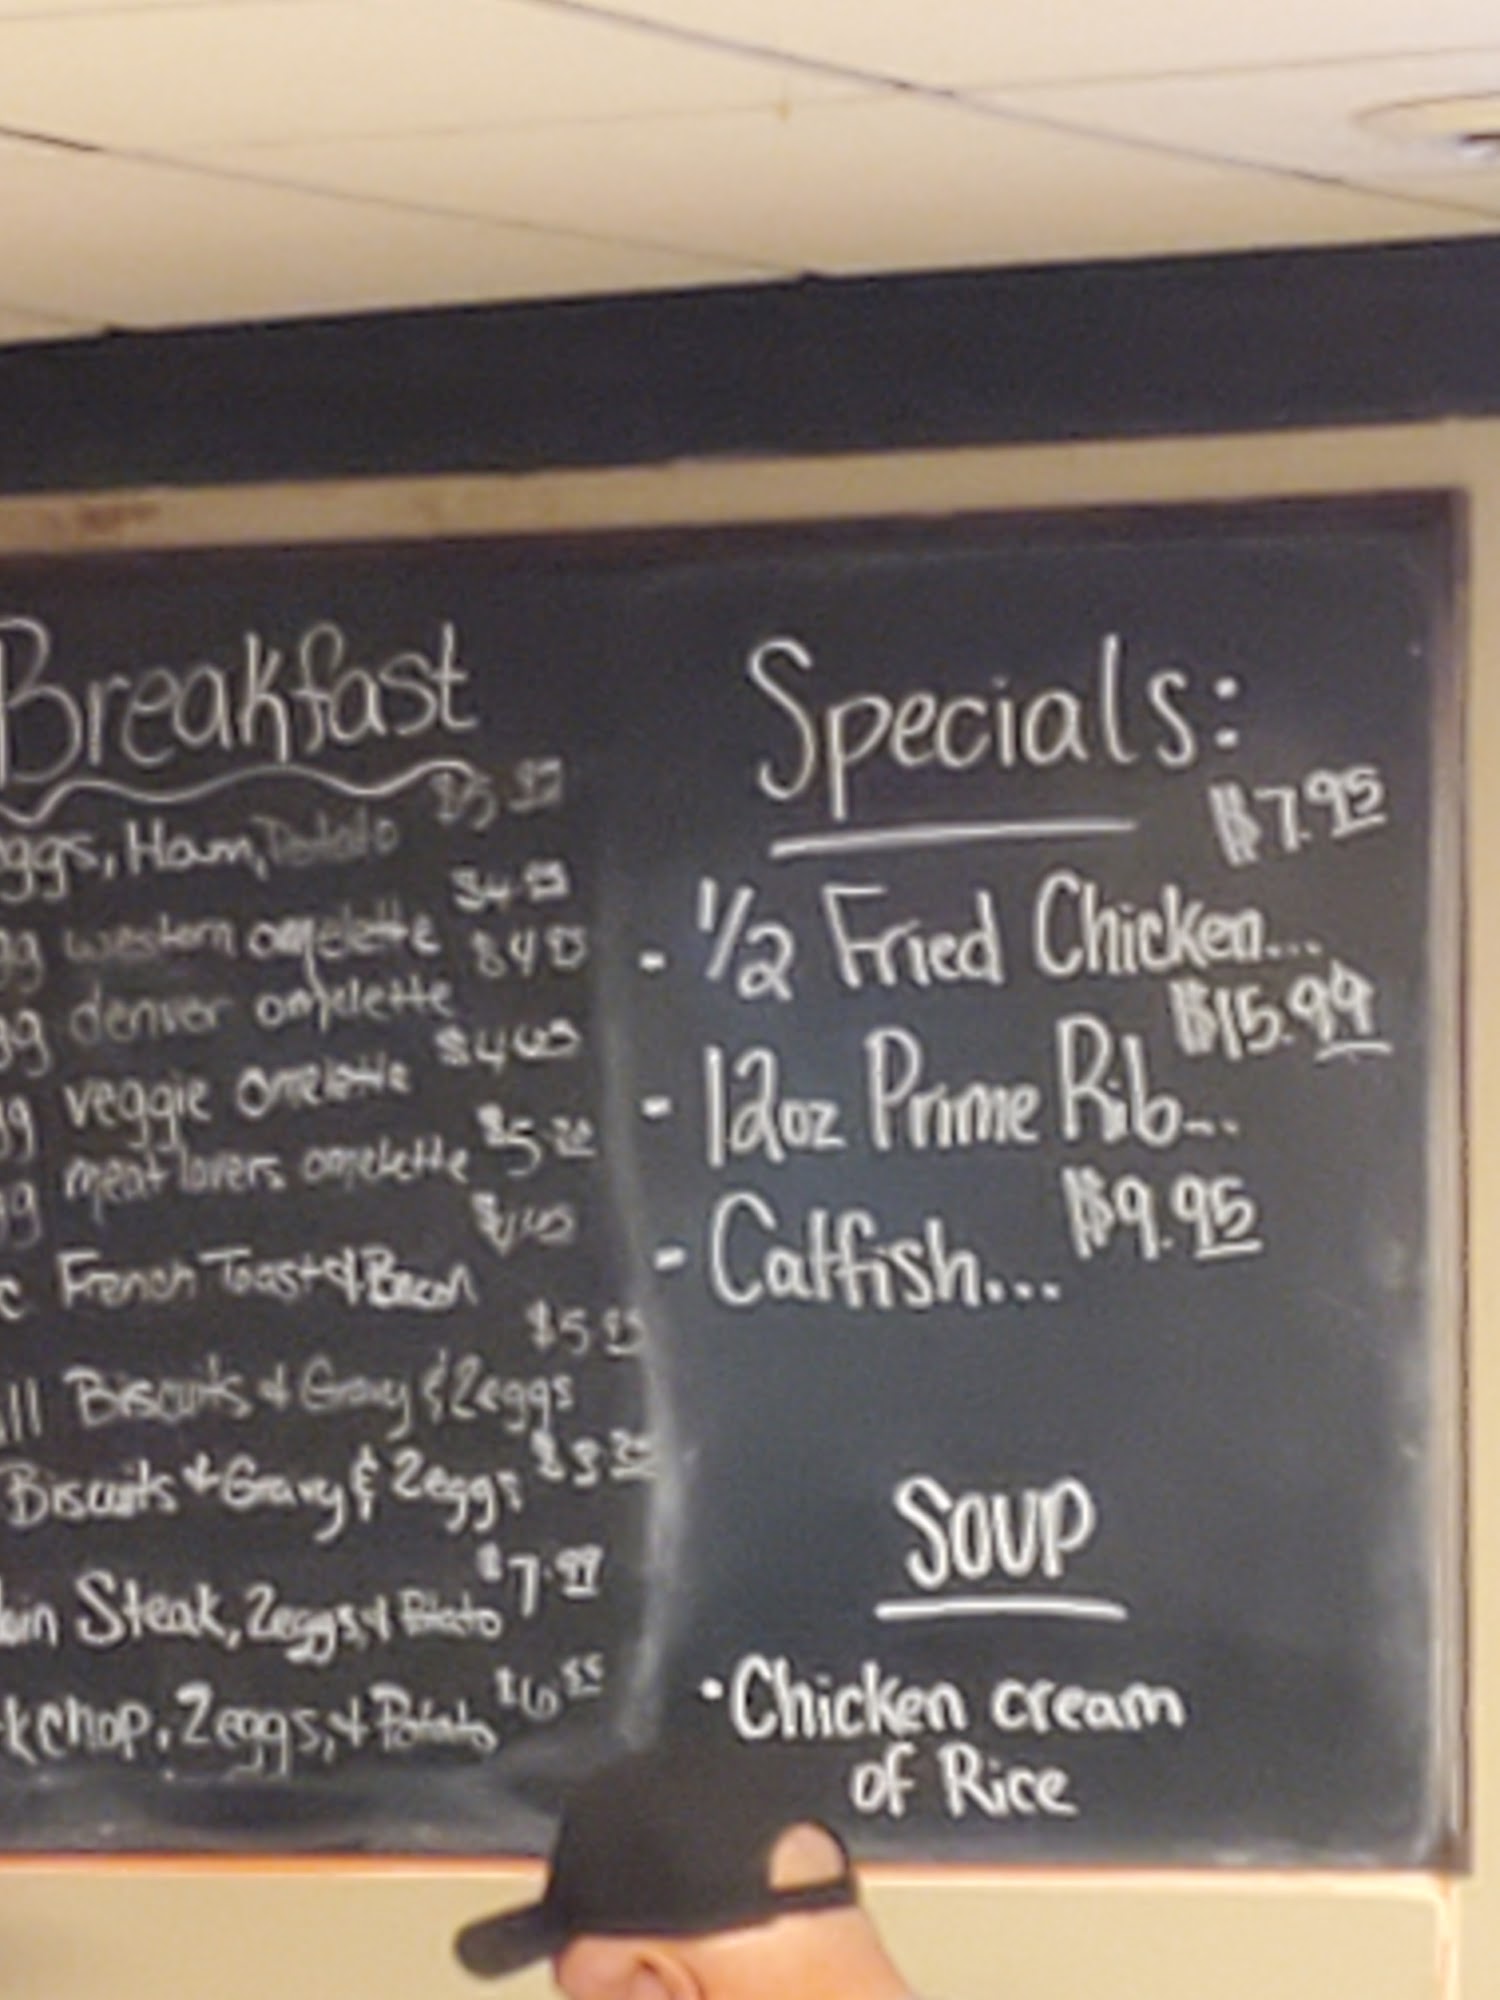 Breakfast
ggs, Ham, Potato
gg western omelette
gg denver omelette
gg veggie omelette
gg meat lovers omelette
French Toast & Bacon
ll Biscuits & Gravy & 2eggs
Biscuits & Gravy & 2eggs
Steak, 2eggs, & Potato $7.99
chop, 2eggs, & Potato
Specials:
$7.95
- 1/2 Fried Chicken...
$15.99
- 12oz Prime Rib...
- Catfish... $9.95
SOUP
• Chicken cream
of Rice